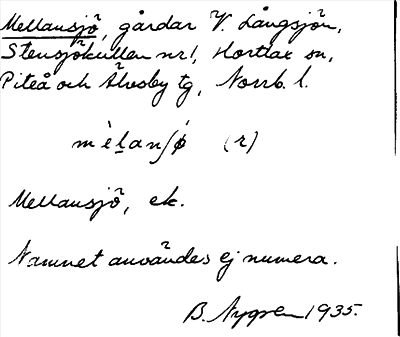 Mellansjö, gårdar V. Långsjön,
Stensjökullen nr 1, Hortlax sn,
Piteå och Älvsby tg, Norrb. l.
mèlanʃǿ (r)
Mellansjö, ek.
Namnet användes ej numera.
B. Nygren 1935.